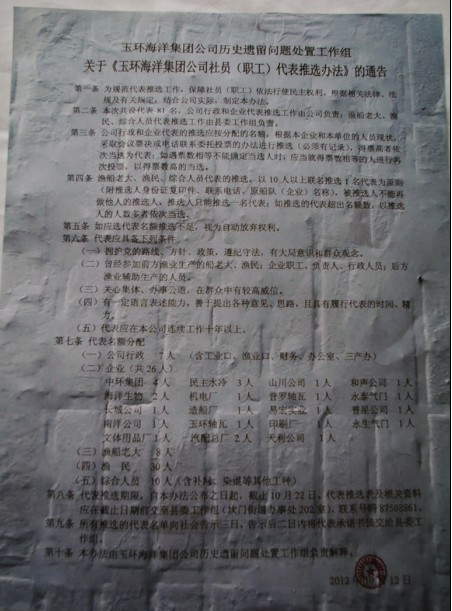 玉环海洋集团公司历史遗留问题处置工作组
关于《玉环海洋集团公司社员（职工）代表推选办法》的通告
第一条 为规范代表推选工作，保障社员（职工）依法行使民主权利，根据相关法律、法
规及有关规定，结合公司实际，制定本办法。
第二条 本次共设代表 81 名，公司行政和企业代表推选工作由公司负责；渔船老大、渔
民、综合人员代表推选工作由县委工作组负责。
第三条 公司行政和企业代表的推选应按分配的名额，根据本企业和本单位的人员现状，
采取会议票决或电话联系委托投票的办法进行推选（必须有记录），得票高者依
次当选为代表；如遇票数相等不能确定当选人时，应当就得票数相等的人进行再
次投票，以得票数高的当选。
第四条 渔船老大、渔民、综合人员代表的推选，以 10 人以上联名推选 1 名代表为原则
（附推选人身份证复印件、联系电话、原船队（企业）名称），被推选人不能再
做他人的推选人，推选人只能推选一名代表；如推选的代表超出名额数，以推选
人的人数多者依次当选。
第五条 如应选代表名额推选不足，视为自动放弃权利。
第六条 代表应具备下列条件
（一）拥护党的路线、方针、政策，遵纪守法，有大局意识和群众观念。
（二）曾经参加前方渔业生产的船老大、渔民；企业职工、负责人、行政人员；后方
渔业辅助生产的人员。
（三）关心集体、办事公道，在群众中有较高威信。
（四）有一定语言表述能力，善于提出各种意见、思路，且具有履行代表的时间、精
力。
（五）代表应在本公司连续工作十年以上。
第七条 代表名额分配
（一）公司行政 7 人 （含工业口、渔业口、财务、办公室、三产办）
（二）企业（共 26 人）
中环集团 4 人 民主水冷 3 人 山川公司 1 人 和声公司 1 人
海洋生物 2 人 机电厂 1 人 普罗轴瓦 1 人 永泰气门 1 人
长城公司 1 人 造船厂 1 人 易宏实业 1 人 普星公司 1 人
南洋公司 1 人 玉环轴瓦 1 人 印刷厂 1 人 永生气门 1 人
文体用品厂 1 人 汽配总厂 2 人 天利公司 1 人
（三）渔船老大 8 人
（四）渔 民 30 人
（五）综合人员 10 人（含补网、染退等其他工种）
第八条 代表推选期限，自本办法公布之日起，截止 10 月 22 日，代表推选表及相关资料
应在截止日期前交至县委工作组（坎门街道办事处 202 室），联系号码 87508861。
第九条 所有推选的代表名单向社会告示三日，告示后二日内将代表承诺书提交给县委工
作组。
第十条 本办法由玉环海洋集团公司历史遗留问题处置工作组负责解释。
2012 年 10 月 12 日